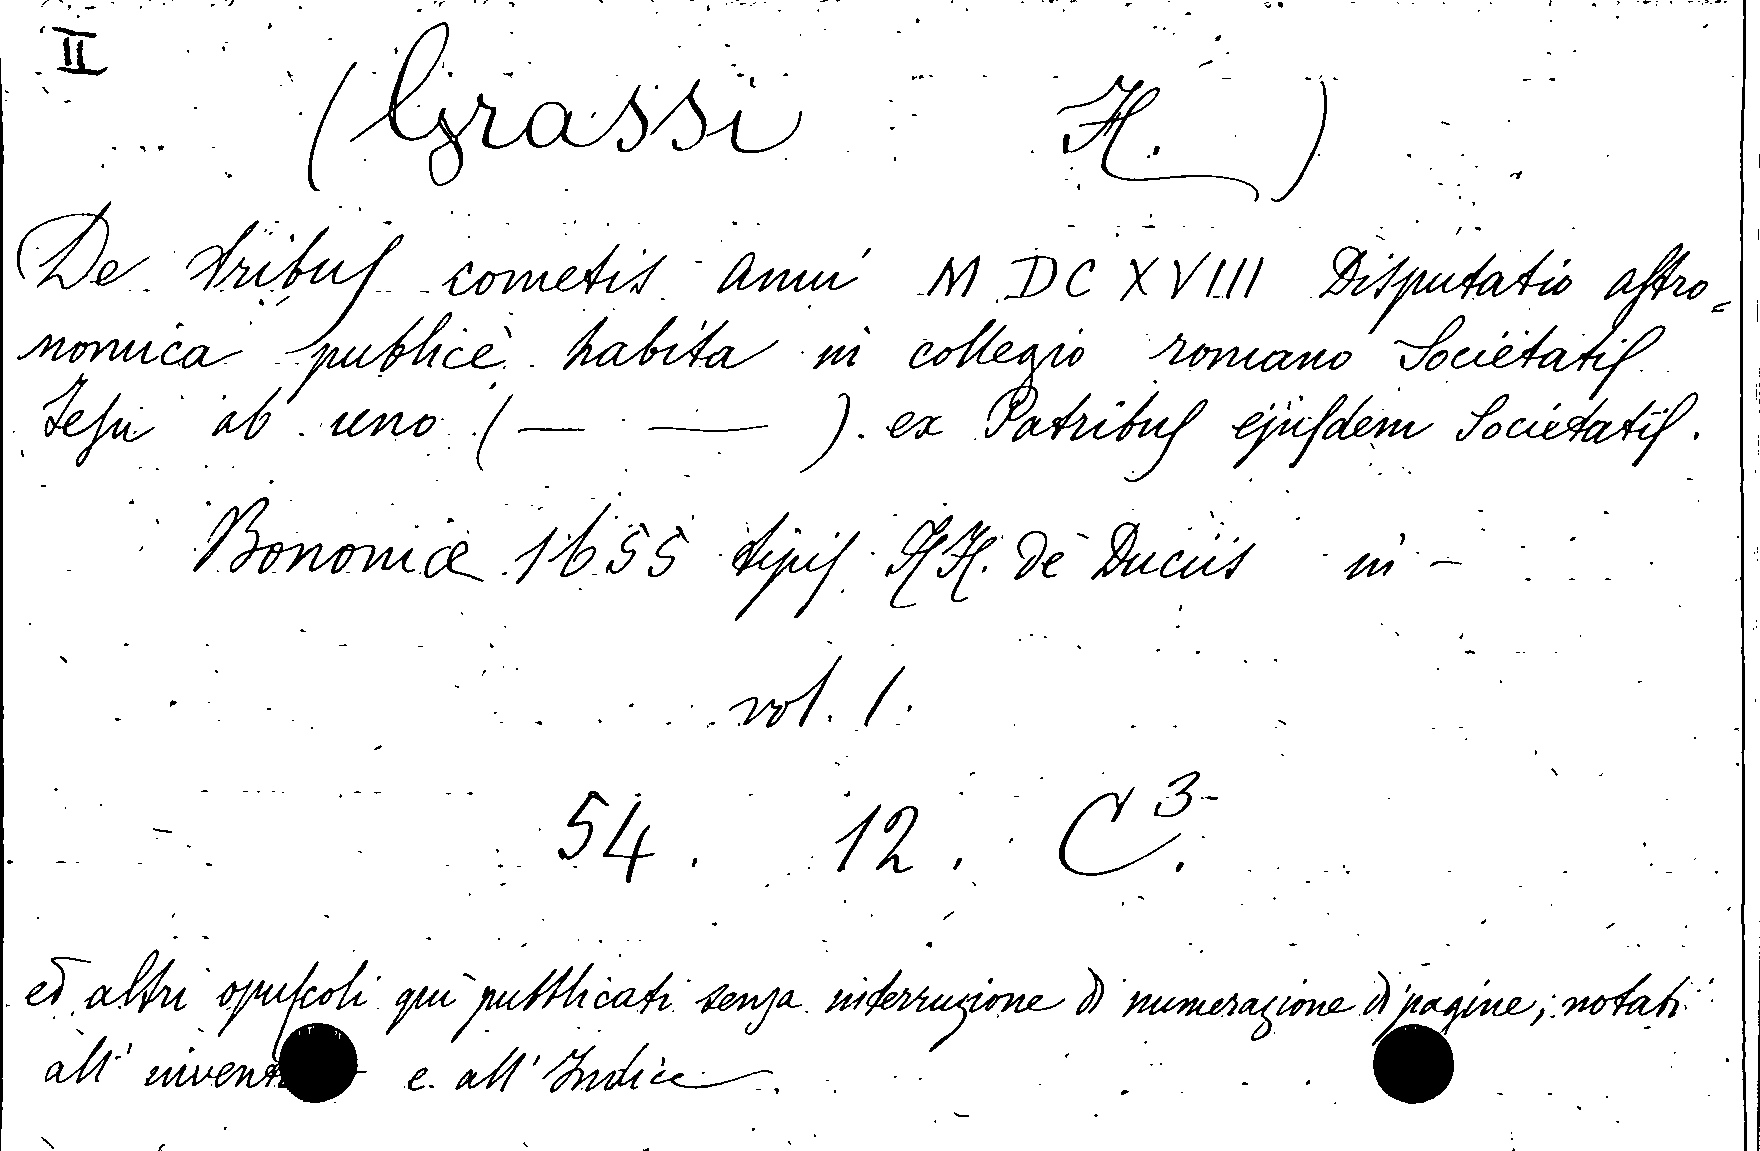 II
(Grassi H.)
De tribus cometis anni MDCXVIII Disputatio astro=
nomica publicè habita in collegio romano Societatis
Jesu ab uno (— —). ex Patribus ejusdem Societatis.
Bononiæ 1655 tipis HH. De Duciis in -
vol. 1.
54. 12. C³.
ed altri opuscoli qui pubblicati senza interruzione di numerazione di pagine, notati
all' e all' Indice